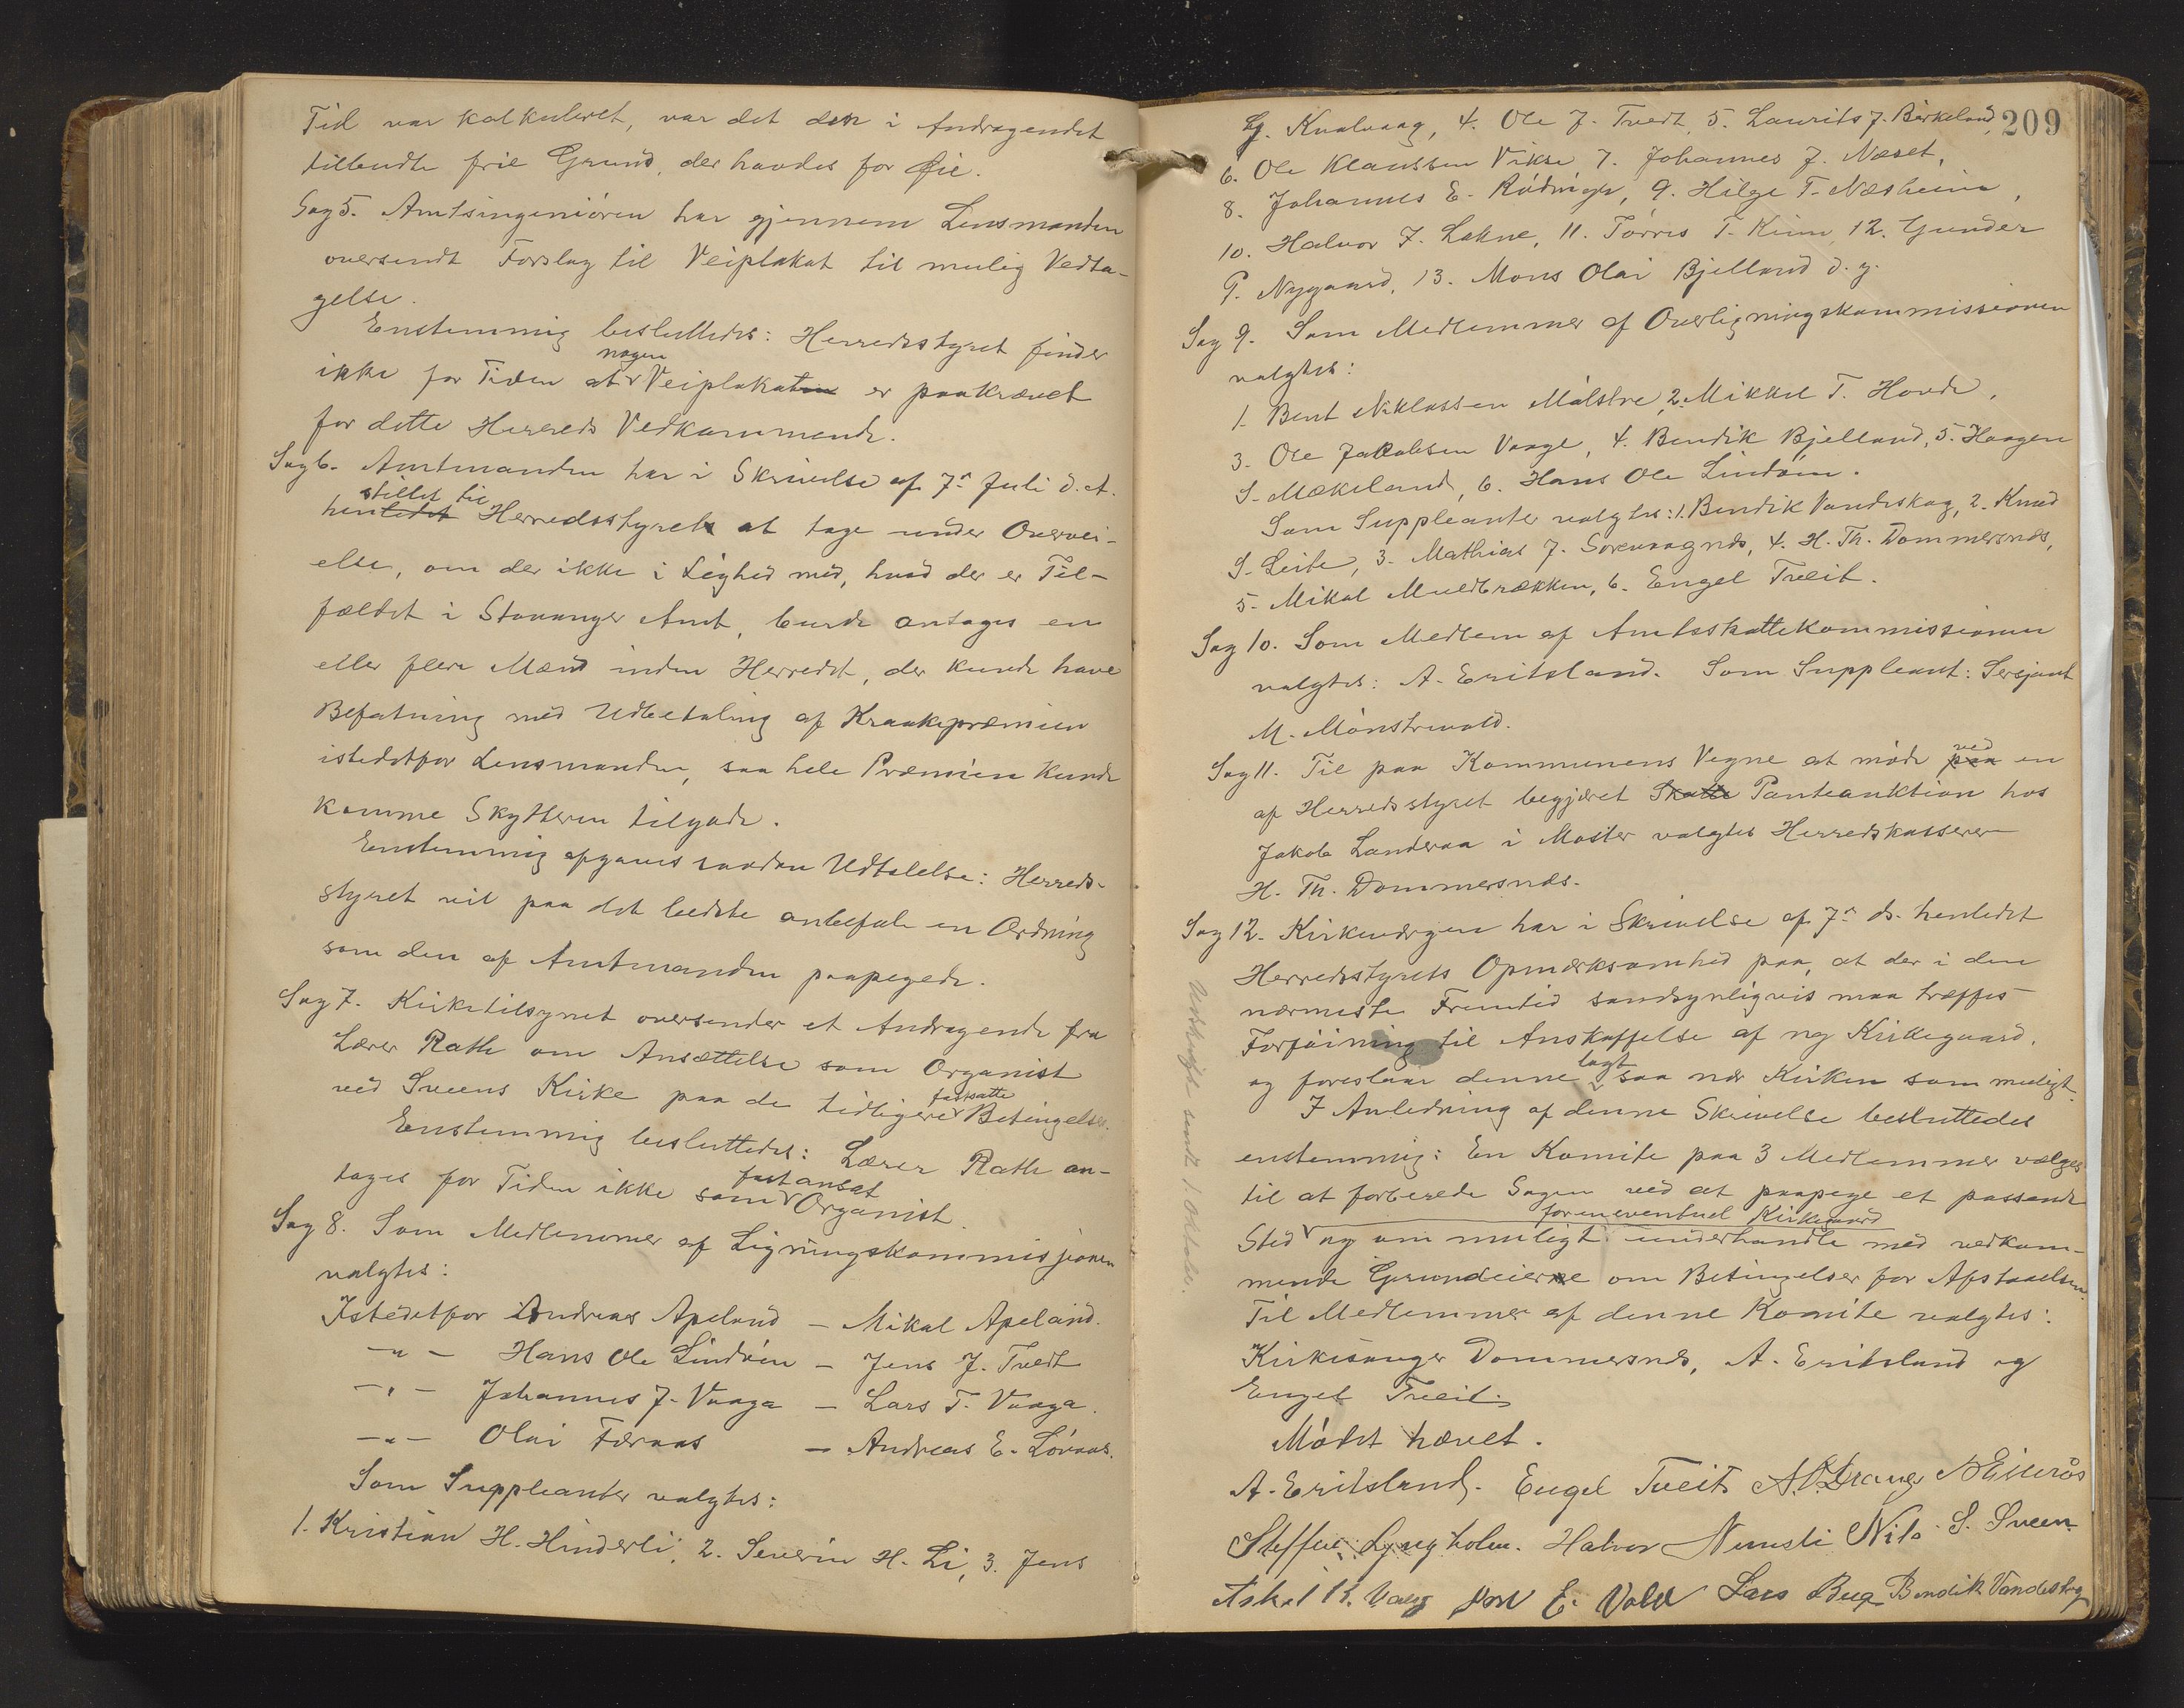 Tid var kalkuleret, var det den i Andragendet
tilbudte frie Grund, der havdes for Øie.
Sag 5. Amtsingeniøren har gjennem Lensmanden
oversendt Forslag til Veiplakat til mulig Vedta-
gelse.
Enstemmig besluttedes: Herredsstyret finder
ikke for Tiden at nogen Veiplakaten er paakrævet
for dette Herreds Vedkommende.
Sag 6. Amtmanden har i Skrivelse af 7de Juli d.A.
henledet stillet til Herredsstyret at tage under Overvei-
else, om der ikke i Lighed med, hvad der er Til-
fældet i Stavanger Amt, burde antages en
eller flere Mænd inden Herredet, der kunde have
Befatning med Udbetaling af Kraakepræmien
istedetfor Lensmanden, saa hele Præmien kunde
komme Skytteren tilgode.
Enstemmig afgaves saadan Udtalelse: Herreds-
styret vil paa det bedste anbefale en Ordning
som den af Amtmanden paapegede.
Sag 7. Kirketilsynet oversender et Andragende fra
Lærer Rath om Ansættelse som Organist
ved Sveens Kirke paa de tidligere fastsatte Betingelser.
Enstemmig besluttedes: Lærer Rath an-
tages for Tiden ikke som fast ansat Organist.
Sag 8. Som Medlemmer af Ligningskommissionen
valgtes:
Istedetfor Andreas Apeland – Mikal Apeland.
–"– Hans Ole Lindøen – Jens J. Tvedt
–"– Johannes J. Vaaga – Lars T. Vaaga.
–"– Olai Færaas – Andreas E. Løvaas.
Som Suppleanter valgtes:
1. Kristian H. Hinderli, 2. Severin H. Li, 3. Jens
209
G. Kvalvaag, 4. Ole J. Tvedt, 5. Laurits J. Birkeland,
6. Ole Klaussen Vikse 7. Johannes J. Næset,
8. Johannes E. Rødninger, 9. Hilge T. Næsheim,
10. Halvor J. Løkne, 11. Tørres T. Kinn, 12. Gunder
P. Nygaard, 13. Mons Olai Bjelland d.y.
Sag 9. Som Medlemmer af Overligningskommissionen
valgtes:
1. Bent Niklassen Målstre, 2. Mikkel T. Hovde,
3. Ole Jakobsen Vaage, 4. Bendik Bjelland, 5. Haagen
S. Mækeland, 6. Hans Ole Lindøen.
Som Suppleanter valgtes: 1. Bendik Vandeskog, 2. Knud
S. Leite, 3. Mathias J. Sorevaagnes, 4. H. Th. Dommersnæs,
5. Mikal Muelbrækken, 6. Engel Tveit.
Sag 10. Som Medlem af Amtsskattekommissionen
valgtes: A. Eritsland. Som Suppleant: Sersjant
M. Mønstrevold.
Sag 11. Til paa Kommunens Vegne at møde paa ved en
af Herredsstyret begjæret Skatte Panteauktion hos
Jakob Landeraa i Moster valgtes Herredskasserer
H. Th. Dommersnæs.
Sag 12. Kirkeværgen har i Skrivelse af 7de ds. henledet
Herredsstyrets Opmærksomhed paa, at der i den
nærmeste Fremtid sandsynligvis maa træffes
Forføining til Anskaffelse af ny Kirkegaard,
og foreslaar denne lagt saa nær Kirken som muligt.
I Anledning af denne Skrivelse besluttedes
enstemmig: En Komite paa 3 Medlemmer vælges
til at forberede Sagen ved at paapege et passende
Sted for en eventuel Kirkegaard og om muligt underhandle med vedkom-
mende Grundeiere om Betingelser for Afstaaelsen.
Til Medlemmer af denne Komite valgtes:
Kirkesanger Dommersnæs, A. Eritsland og
Engel Tveit.
Mødet hævet.
A. Eritsland. Engel Tveit
Steffen Lyngholm. Halvor Nils S. Sveen
E. Vold Lars Bua Bendik Vandeskog
Udskrift sendt 1 Oktober.